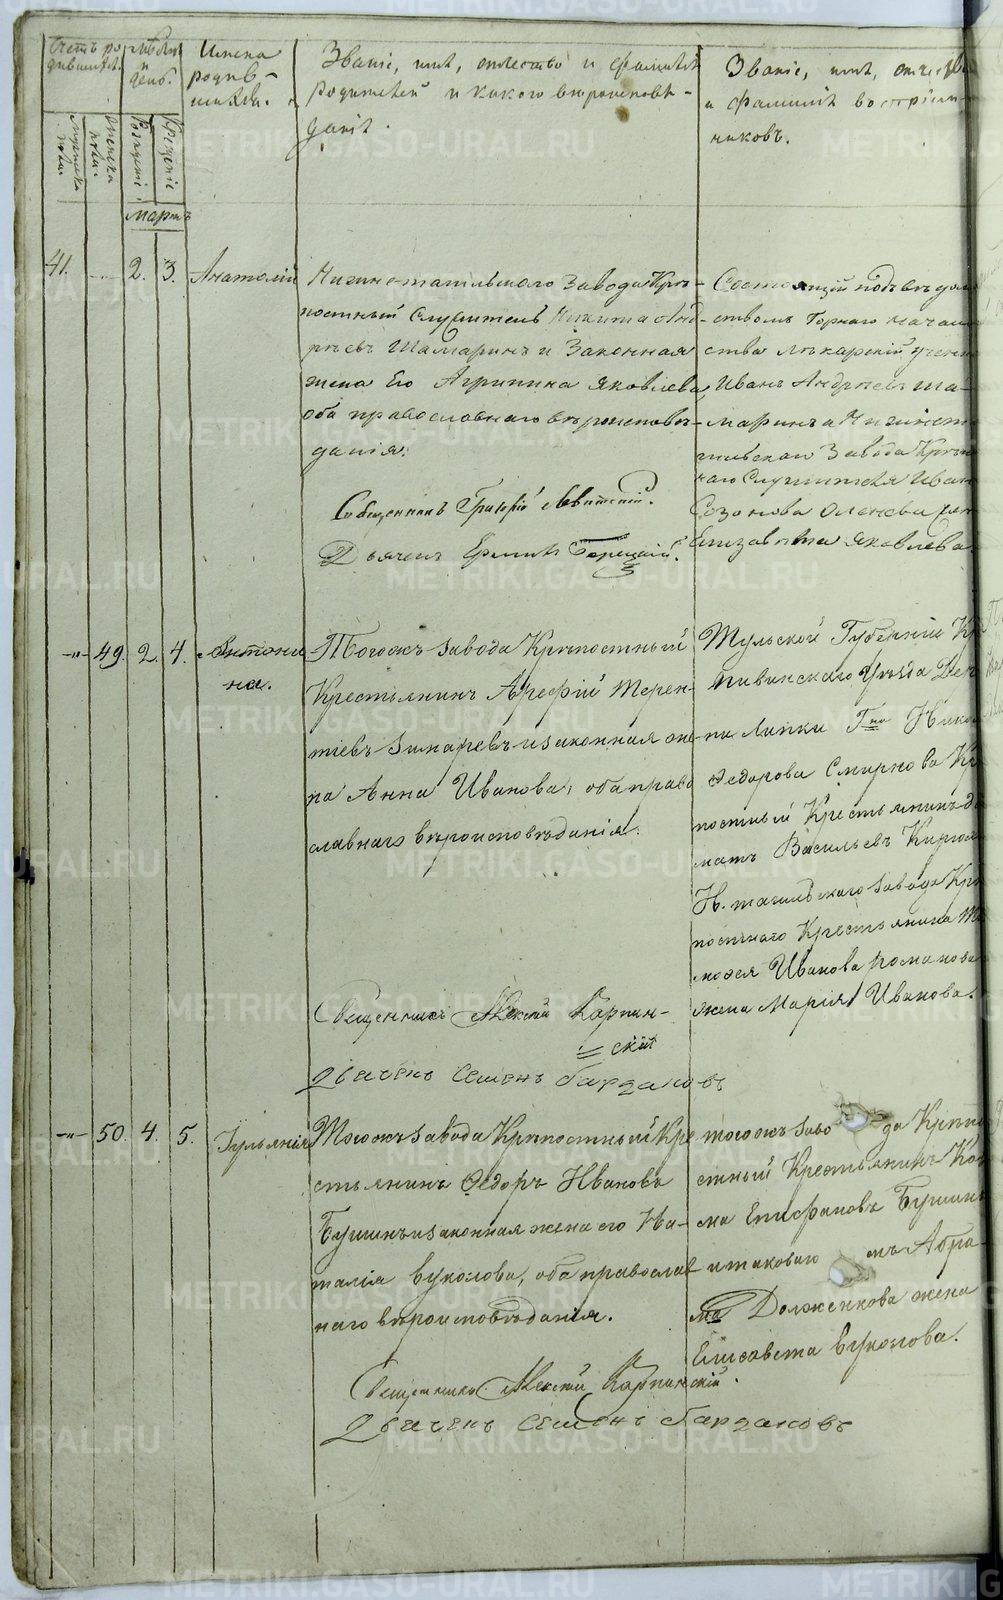 Счетъ ро
дившихся.
Мѣсяцъ
и
день.
Имена
родив-
шихся.
Званіе, имя, отчество и фамилія
родителей и какого вѣроисповѣ-
данія.
Званіе, имя, отчество
и фамилія воспріем-
никовъ.
Мужеска
пола.
Женска
пола.
Рожденія
Крещенія
Мартъ
41.
2.
3.
Анатолій
Нижнетагильскаго Завода Крѣ-
постный Служитель Никита Анд-
рѣевъ Шамаринъ и Законная
жена Его Агрипина Яковлева
оба православнаго вѣроисповѣ-
данія.
Священникъ Григорій
Дьячекъ
Состоящій подъ вѣдом
ствомъ Горнаго начал
ства лѣкарскій учени
Иванъ Андрѣевъ Ша-
маринъ и Нижнета
гильскаго Завода Крѣп
наго Служителя Иван
Созонова
Елизавета Яковлева
-"-
49.
2.
4.
Антони
на.
Тогожъ завода Крѣпостный
Крестьянинъ Арефій Терен-
тіевъ и законная же
на Анна Ивановa, оба право
славнаго вѣроисповѣданія.
Священникъ Алексій Карпин-
скій
Дьячекъ Семенъ
Тульской Губерніи
Уѣзда Дер
ни Липки Гна Никол
Федорова Смирнова Кр
постный Крестьянинъ
Васильевъ
Н. тагильскаго завода Крѣ
постнаго Крестьянина Ти
мофея Иванова Романова
жена Марія Иванова.
-"-
50.
4.
5.
Іульянія
Тогожъ завода Крѣпостный Кре
стьянинъ Федоръ Ивановъ
Бушинъ и законная жена его На-
талія Вуколова, оба православ
наго вѣроисповѣданія.
Священникъ Алексій Карпинскій.
Дьячекъ Семенъ
тогожъ заво да Крѣпо
стный Крестьянинъ Коз
ма Епифановъ Бушинъ
и таковаго Абра-
ма Долженкова жена
Елисавета Вуколова.
METRIKI.GASO-URAL.RU